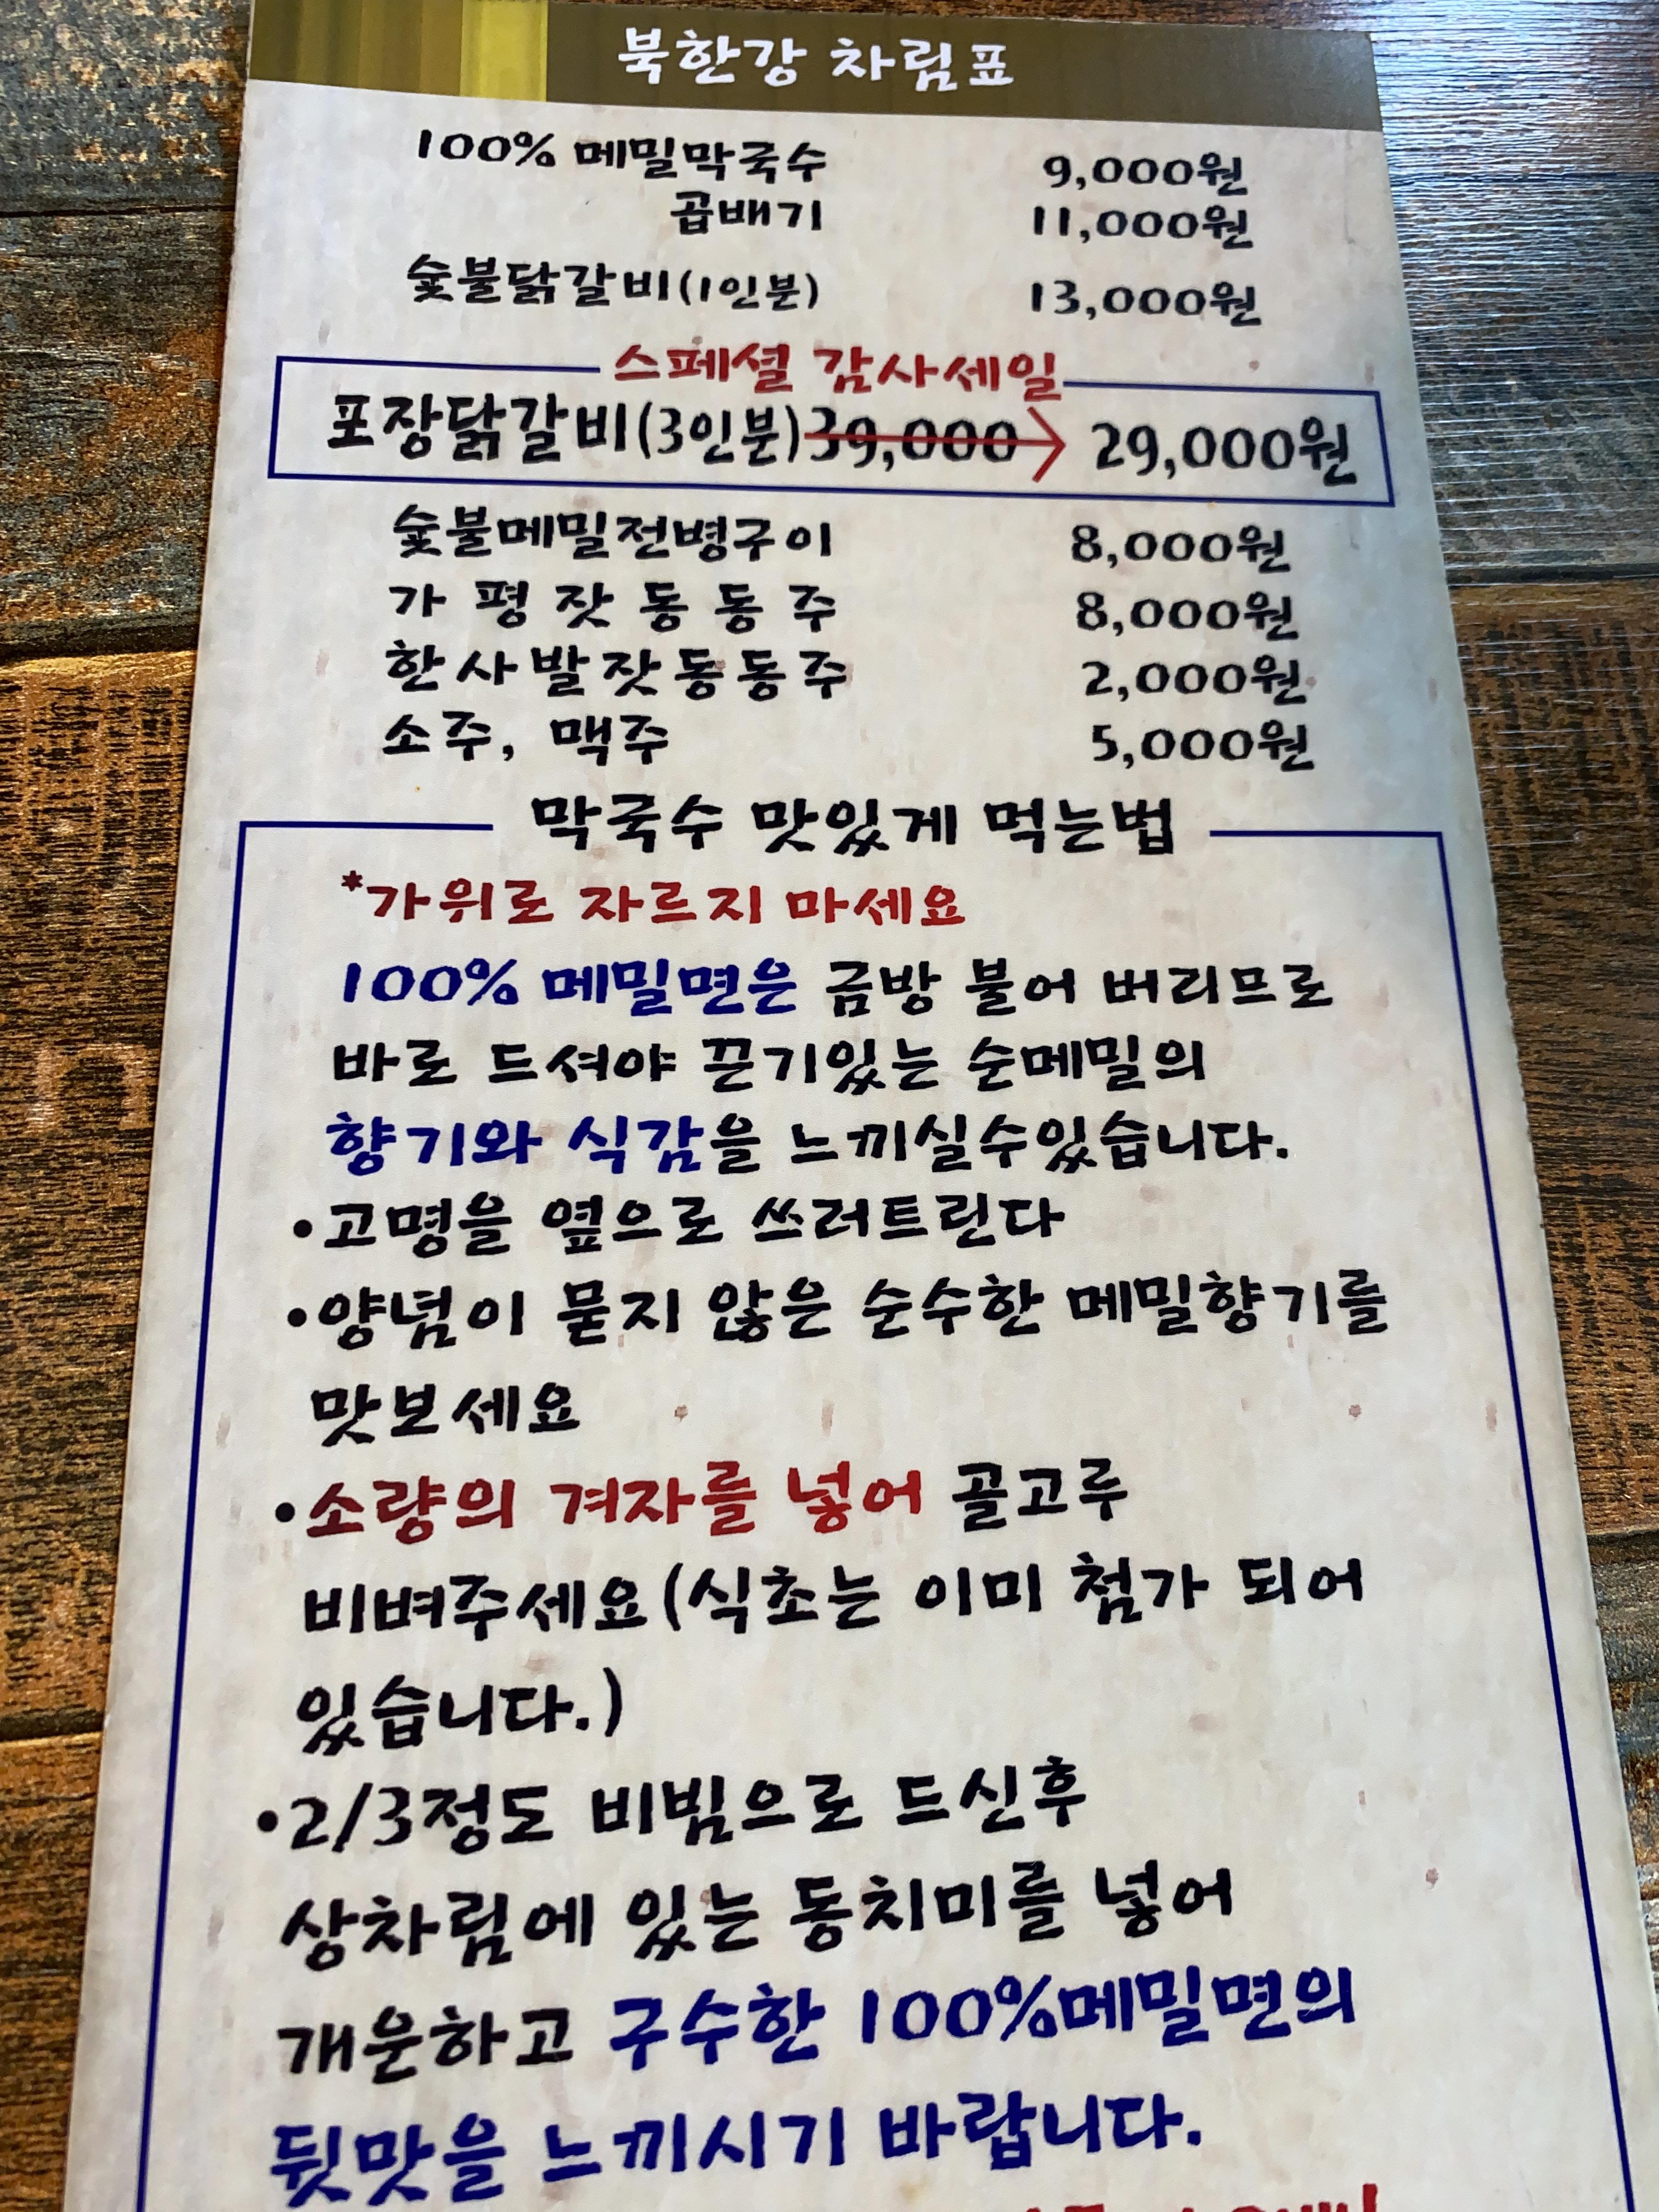 북한강 차림표
100% 메밀막국수 9,000원
곱배기 11,000원
숯불닭갈비(1인분) 13,000원
스페셜 감사세일
포장닭갈비(3인분) 39,000 → 29,000원
숯불메밀전병구이 8,000원
가평잣동동주 8,000원
한사발잣동동주 2,000원
소주, 맥주 5,000원
막국수 맛있게 먹는법
*가위로 자르지 마세요
100% 메밀면은 금방 불어 버리므로
바로 드셔야 끈기있는 순메밀의
향기와 식감을 느끼실수있습니다.
•고명을 옆으로 쓰러트린다
•양념이 묻지 않은 순수한 메밀향기를
맛보세요
•소량의 겨자를 넣어 골고루
비벼주세요(식초는 이미 첨가 되어
있습니다.)
•2/3정도 비빔으로 드신후
상차림에 있는 동치미를 넣어
개운하고 구수한 100%메밀면의
뒷맛을 느끼시기 바랍니다.